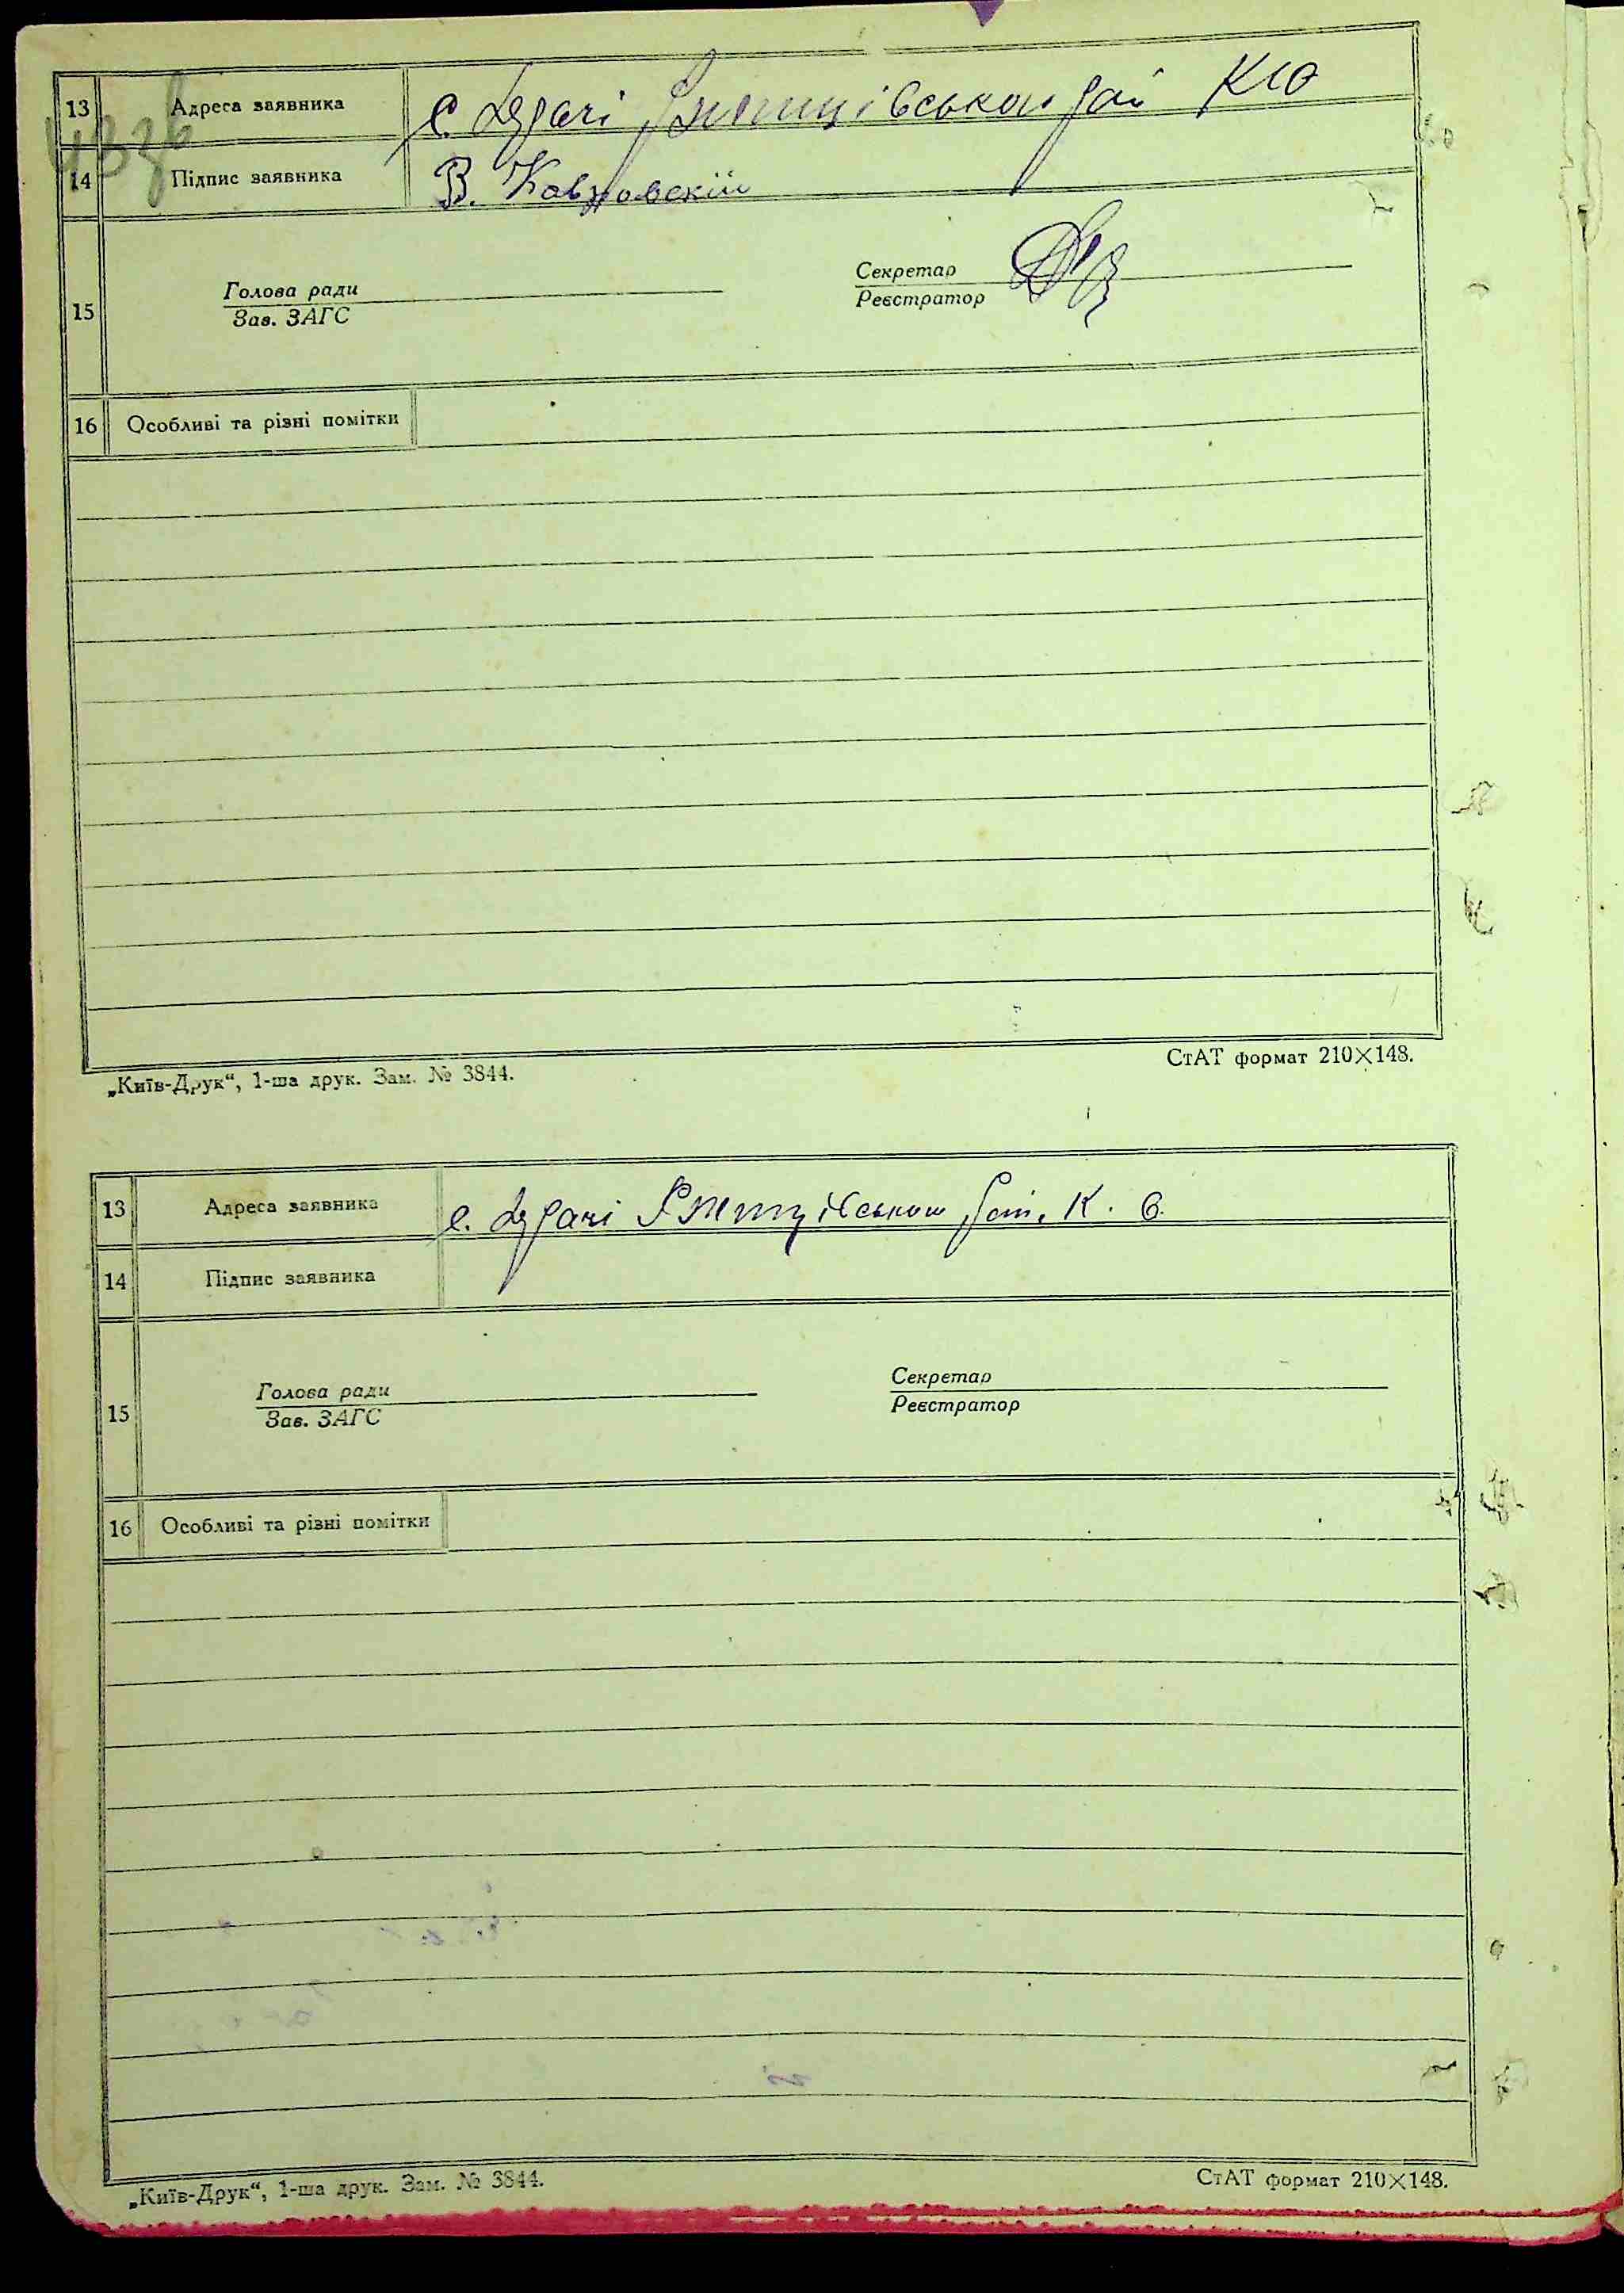 13 Адреса заявника с. Дударі Ржищівського рай КО
43зв
14 Підпис заявника В.
15 Голова ради Секретар
Зав. ЗАГС Реєстратор
16 Особливі та різні помітки
„Київ-Друк“, 1-ша друк. Зам. № 3844. СтАТ формат 210×148.
13 Адреса заявника с. Дударі Ржищівського рай. К. О.
14 Підпис заявника
15 Голова ради Секретар
Зав. ЗАГС Реєстратор
16 Особливі та різні помітки
„Київ-Друк“, 1-ша друк. Зам. № 3844. СтАТ формат 210×148.